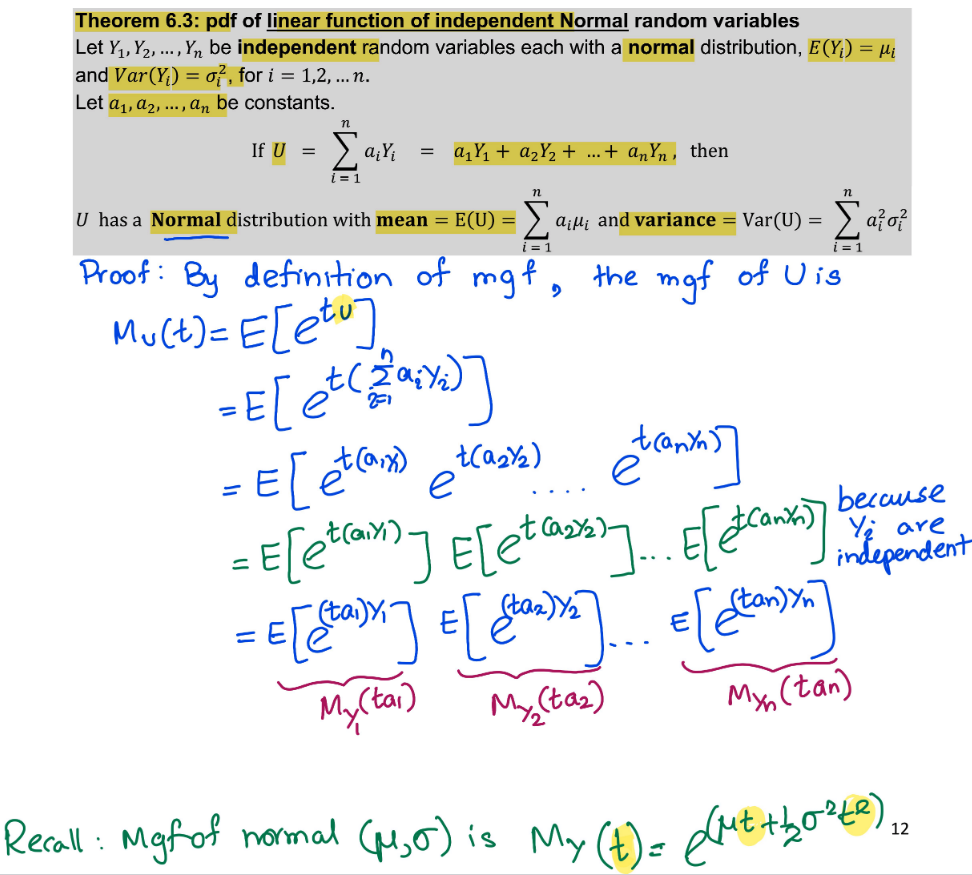 Theorem 6.3: pdf of linear function of independent Normal random variables
Let Y₁, Y₂, …, Yₙ be independent random variables each with a normal distribution, E(Yᵢ) = μᵢ
and Var(Yᵢ) = σᵢ², for i = 1,2, … n.
Let a₁, a₂, …, aₙ be constants.
If U = ∑ᵢ₌₁ⁿ aᵢYᵢ = a₁Y₁ + a₂Y₂ + …+ aₙYₙ, then
U has a Normal distribution with mean = E(U) = ∑ᵢ₌₁ⁿ aᵢμᵢ and variance = Var(U) = ∑ᵢ₌₁ⁿ aᵢ²σᵢ²
Proof: By definition of mgf, the mgf of U is
M_U(t) = E[e^{tU}]
= E[e^{t(∑ᵢ₌₁ⁿ aᵢYᵢ)}]
= E[e^{t(a₁Y₁)} e^{t(a₂Y₂)} .... e^{t(aₙYₙ)}]
= E[e^{t(a₁Y₁)}] E[e^{t(a₂Y₂)}]... E[e^{t(aₙYₙ)}] because Yᵢ are independent
= E[e^{(ta₁)Y₁}] E[e^{(ta₂)Y₂}]... E[e^{(taₙ)Yₙ}]
M_{Y₁}(ta₁) M_{Y₂}(ta₂) M_{Yₙ}(taₙ)
Recall: Mgf of normal (μ,σ) is M_Y(t) = e^{(μt + ½σ²t²)}
12